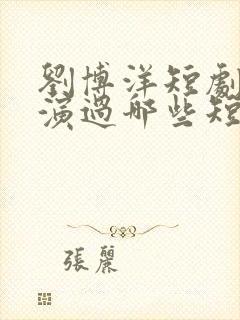 劉博洋短劇
演過哪些短
張麗